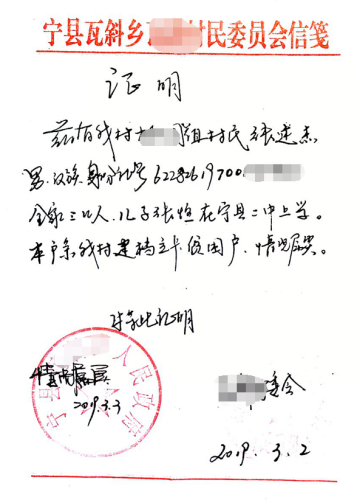 宁县瓦斜乡村民委员会信笺
证明
兹有我村组村民张建杰
男.汉族.身份证号62282619700
全家三口人,儿子张恒在宁县二中上学。
本户系我村建档立卡贫困户,情况属实。
特此证明
情况属实
2019.3.3
宁县人民政府
委会
2019.3.2